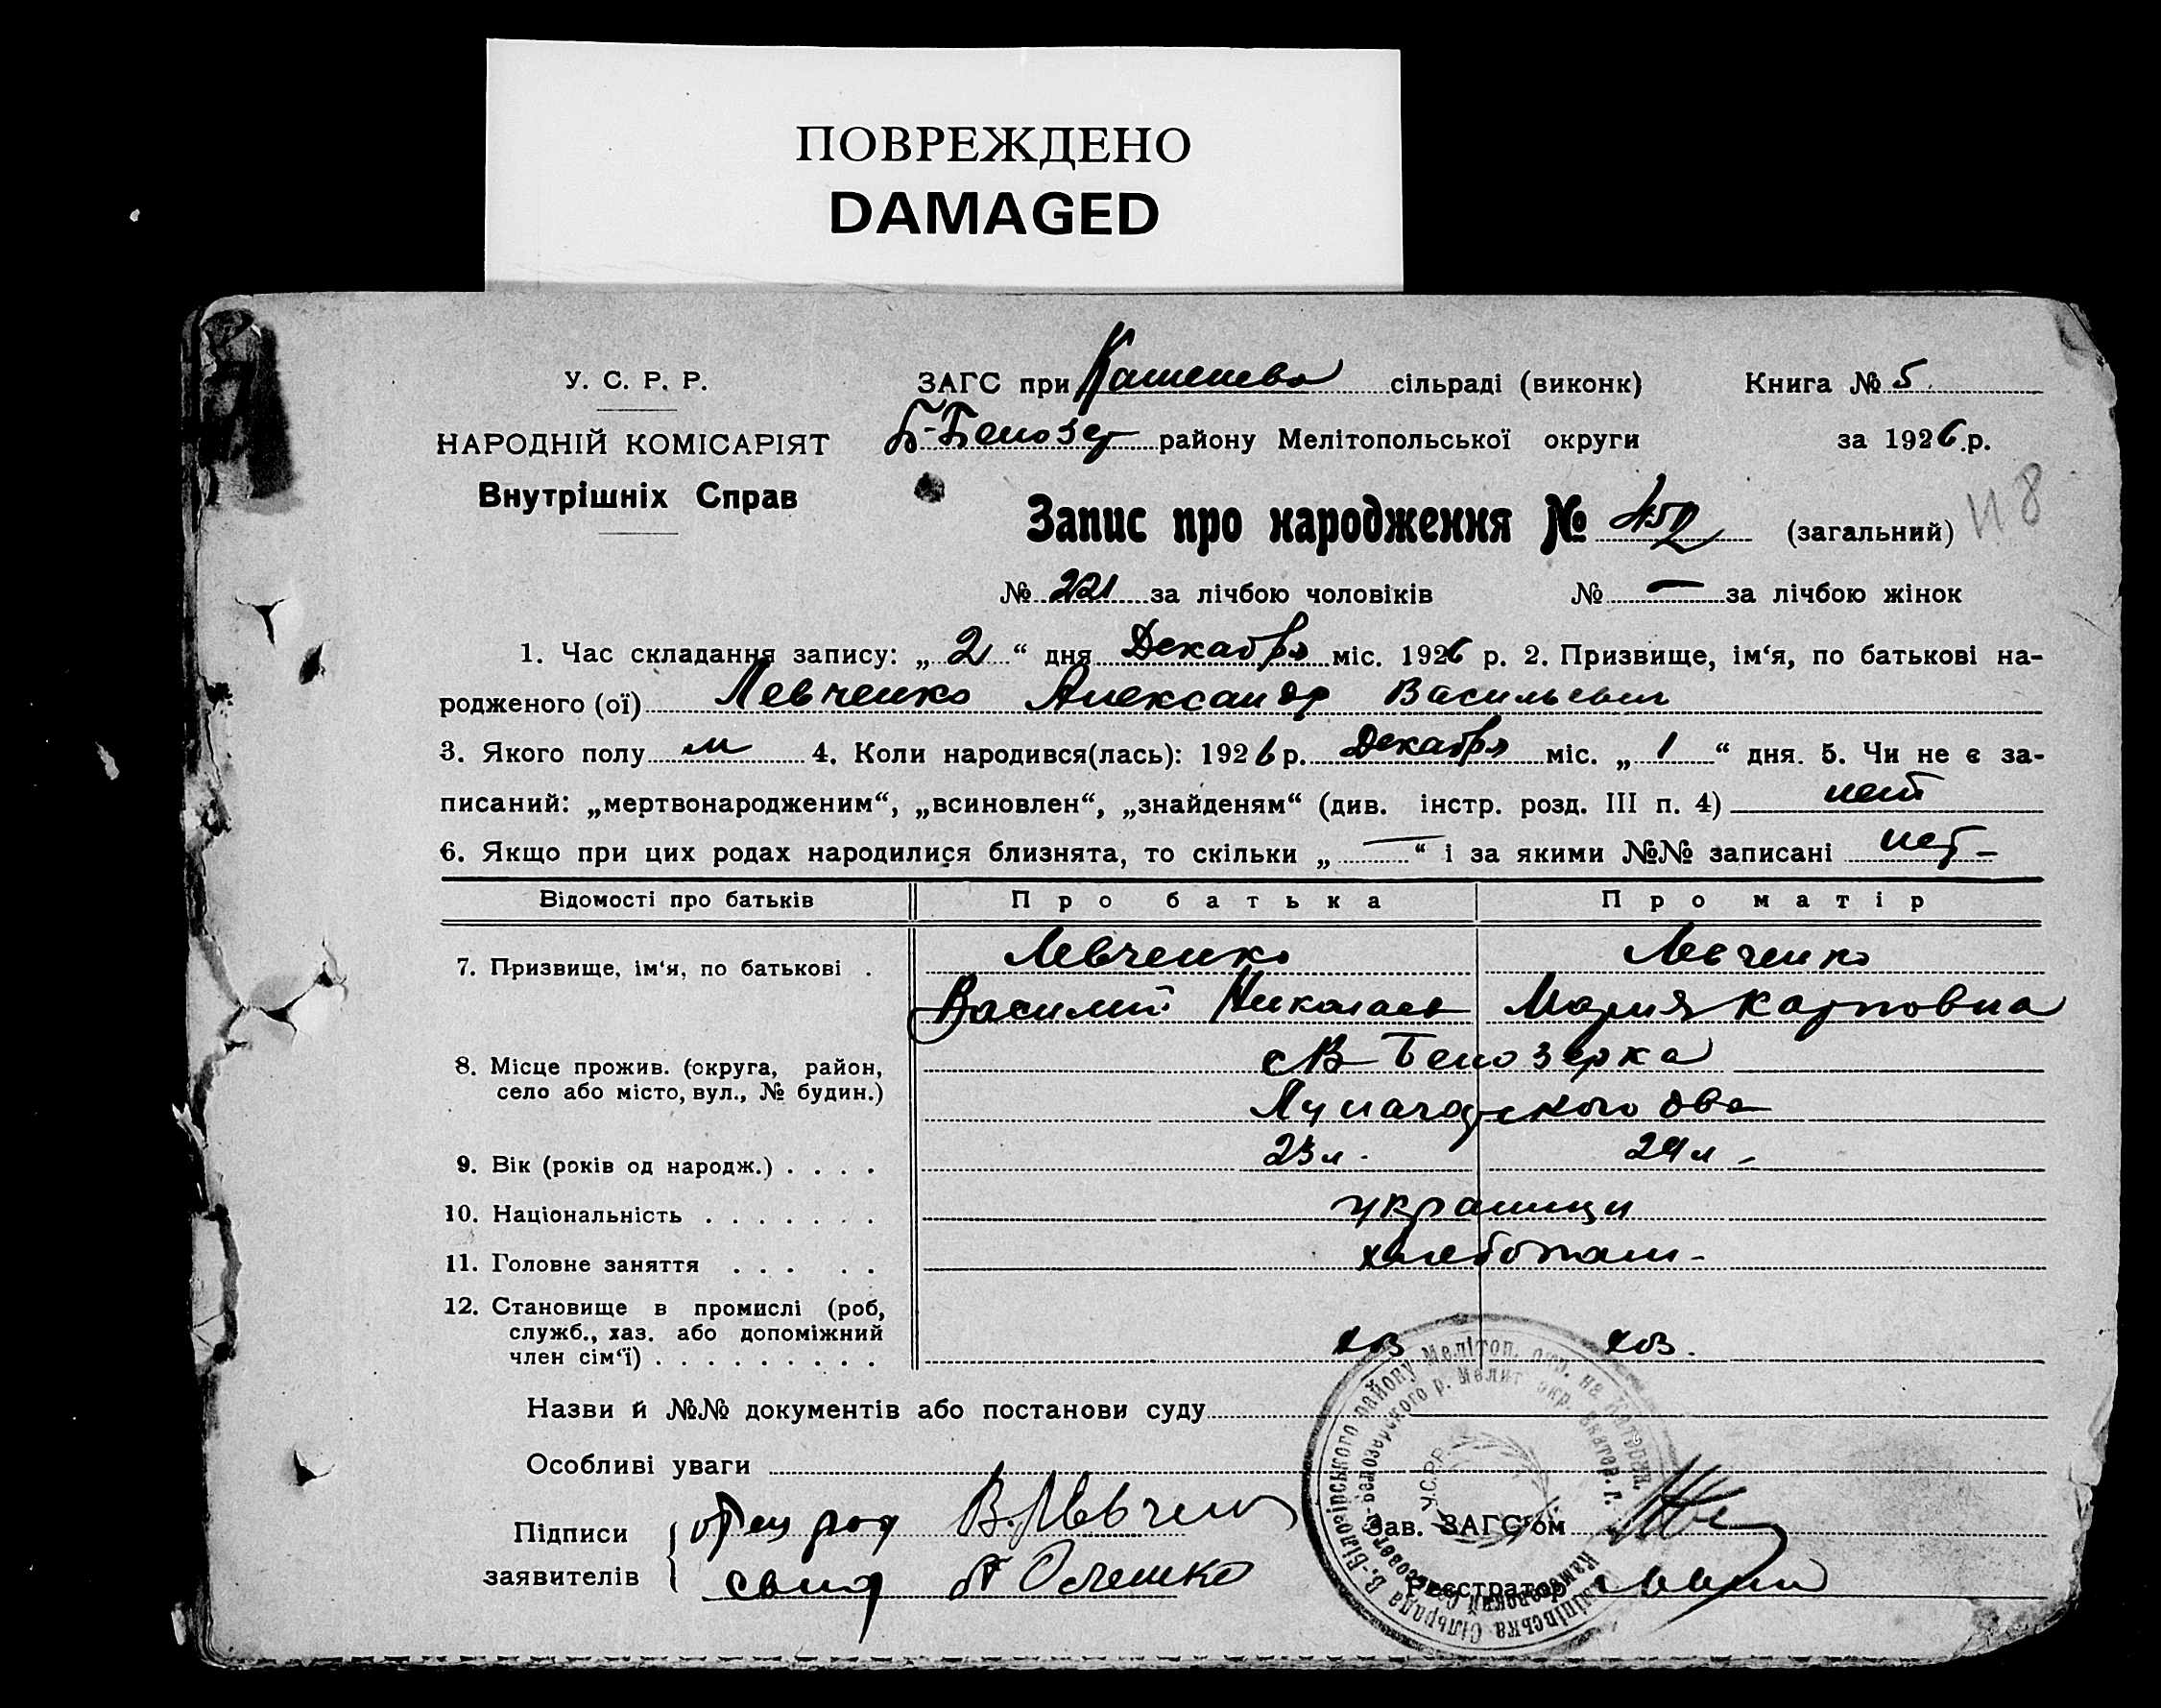 ПОВРЕЖДЕНО
DAMAGED
У. С. Р. Р.
НАРОДНІЙ КОМІСАРІЯТ
Внутрішніх Справ
ЗАГС при сільраді (виконк) Книга № 5
Б-Белозер району Мелітопольської округи за 1926 р.
Запис про народження № 452 (загальний) 118
№ 221 за лічбою чоловіків № — за лічбою жінок
1. Час складання запису: „2“ дня Декабря міс. 1926 р. 2. Призвище, ім‘я, по батькові на-
родженого (ої) Левченко Александр Васильевич
3. Якого полу м 4. Коли народився(лась): 1926 р. Декабря міс. „1“ дня. 5. Чи не є за-
писаний: „мертвонародженим“, „всиновлен“, „знайденям“ (див. інстр. розд. III п. 4) нет
6. Якщо при цих родах народилися близнята, то скільки „—“ і за якими №№ записані нет —
Відомості про батьків Про батька Про матір
7. Призвище, ім‘я, по батькові . Левченко Левченко
Василий Николаев Мария Карповна
8. Місце прожив. (округа, район, с В Белозерка
село або місто, вул., № будин.) Луначарского
9. Вік (років од народж.) . . . . 23 л. 24 л —
10. Національність . . . . . . . украинци
11. Головне заняття . . . . . хлебопаш-
12. Становище в промислі (роб,
служб., хаз. або допоміжний
член сім‘ї) . . . . . . . . . хоз хоз.
Назви й №№ документів або постанови суду
Особливі уваги
Підписи отец род В. Левчен
заявителів свид Олешко
Зав. ЗАГС‘ом
Реєстратор
В.-Білозірського району Мелітоп. окр. на Катерин.
У.С.Р.Р.